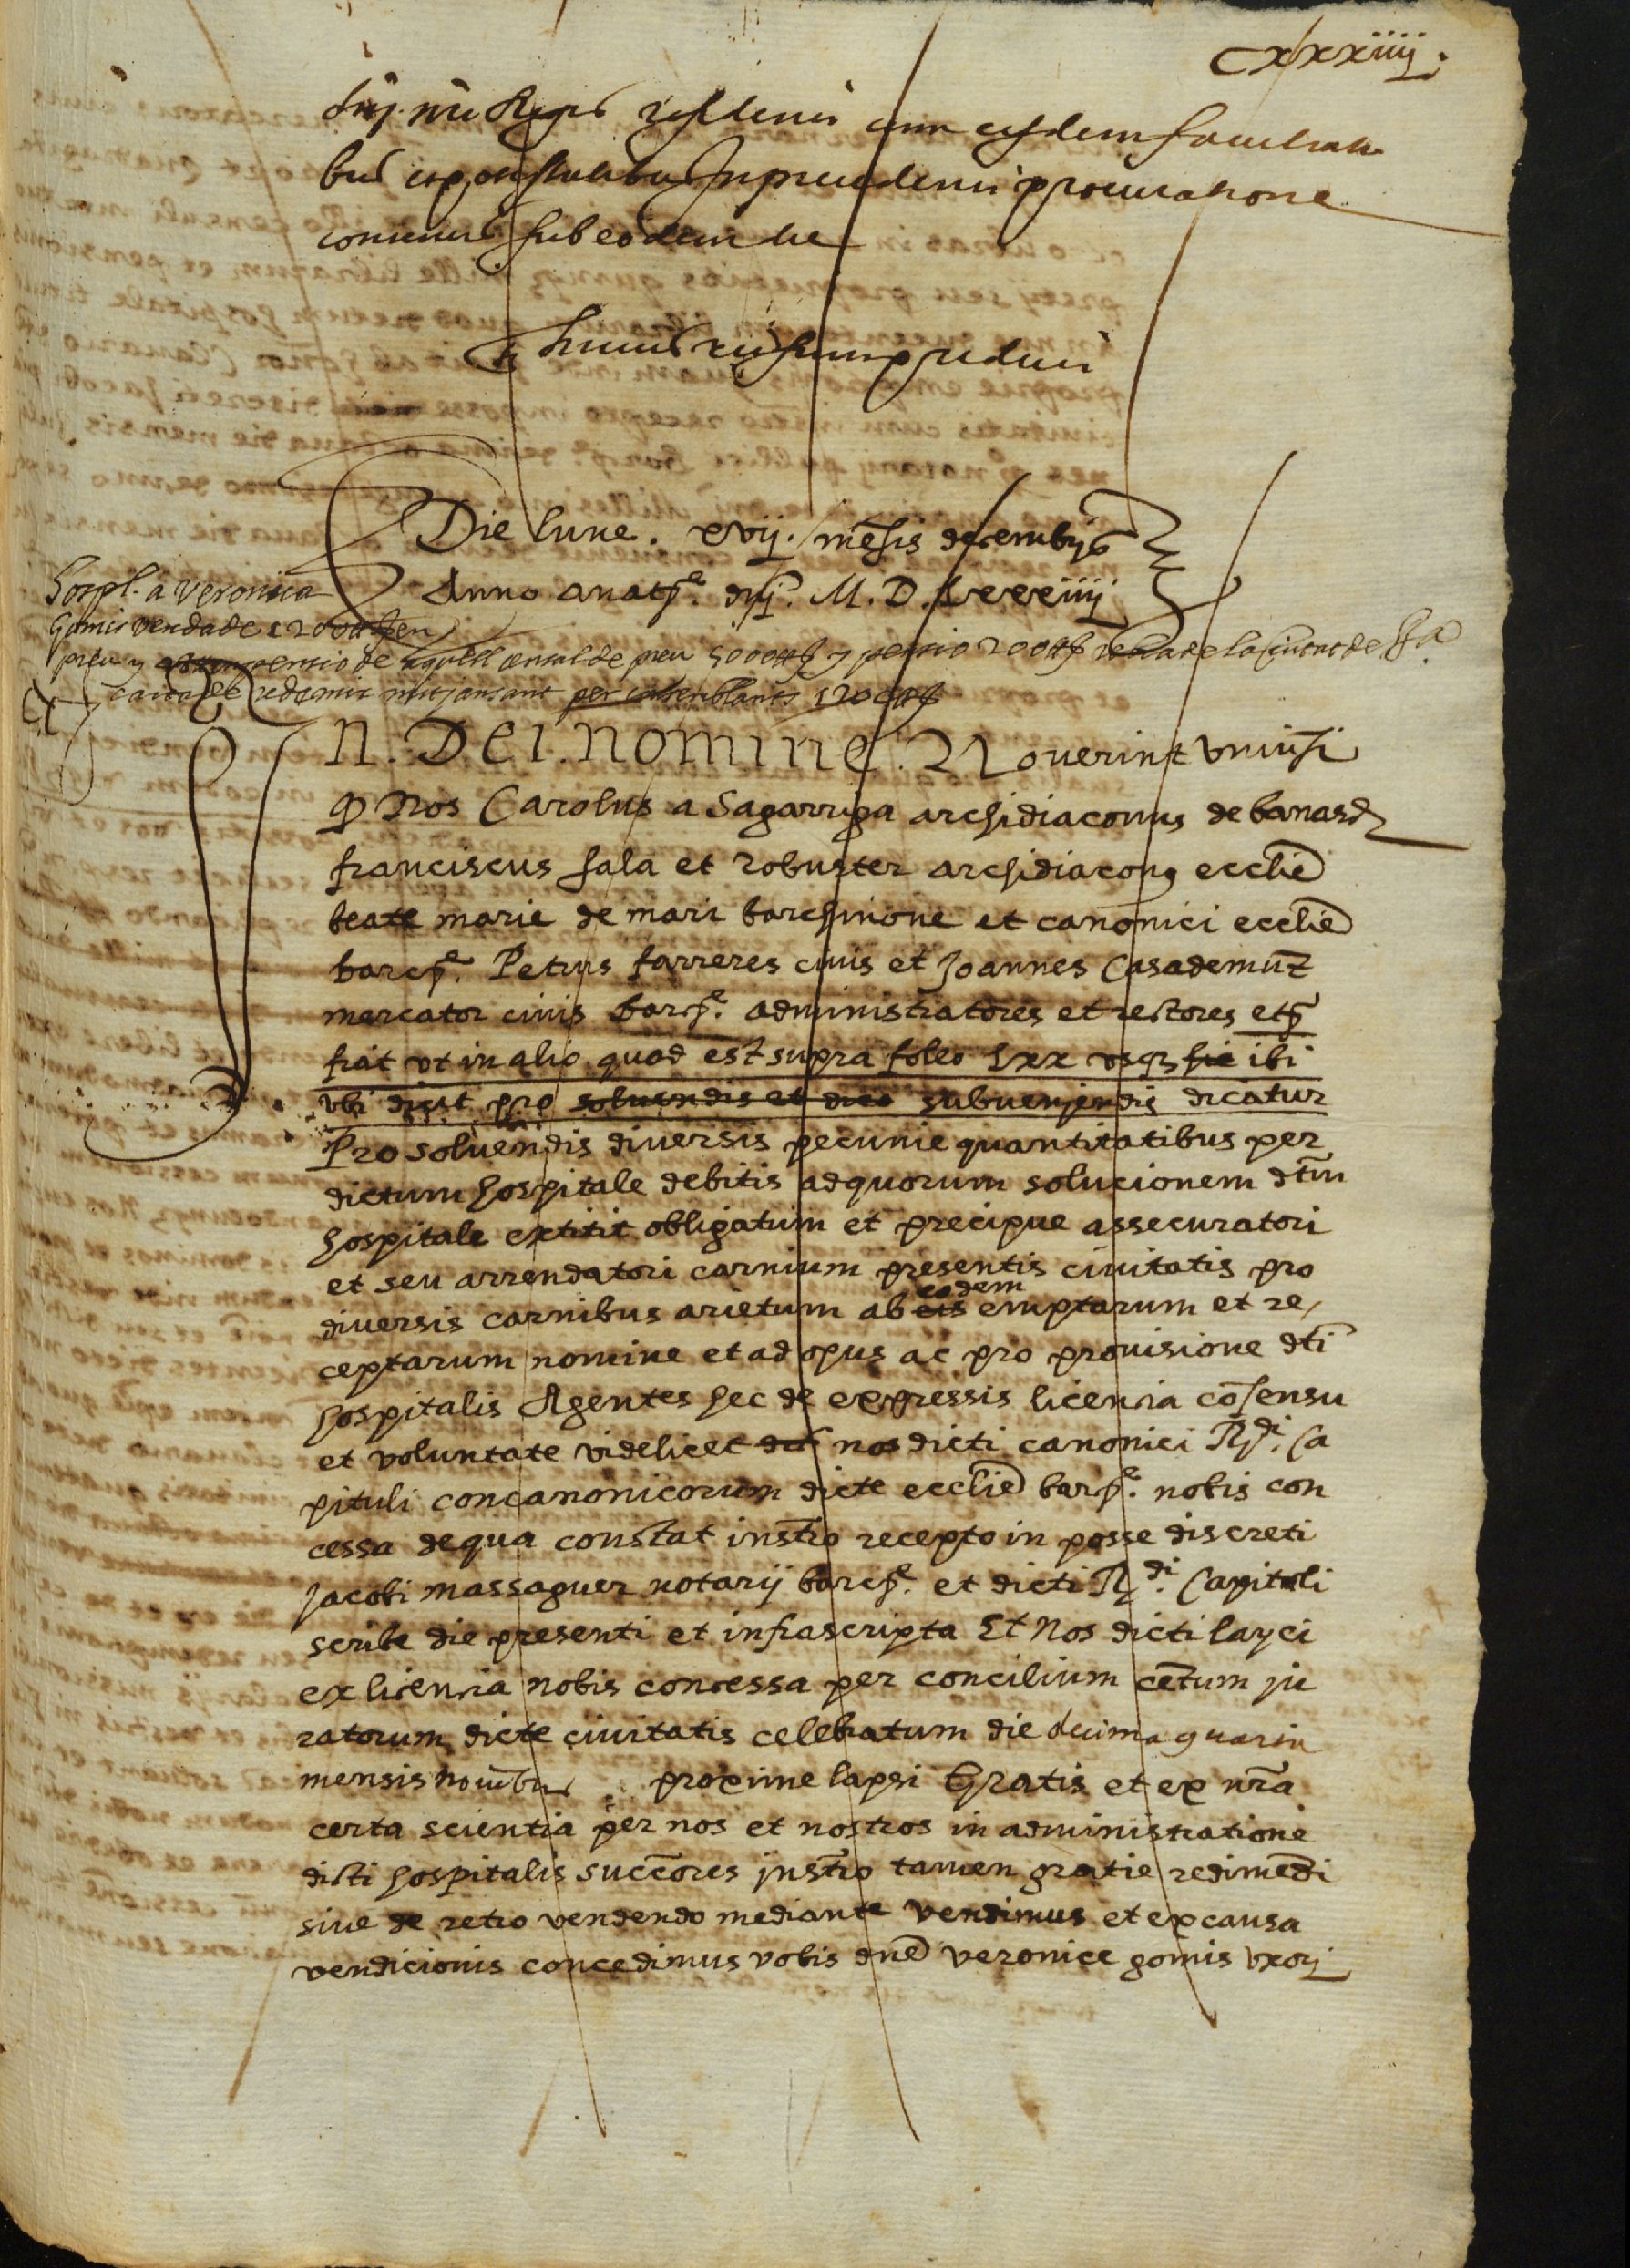 cxxxiiij.
dnj. nri Regis residenti cum eisdem facultati
bus et potestatibus In precedenti procuratione
contentis sub eodem die
Testes huius rei sunt predicti
Die lune. xvij. mēsis decembris
Anno a natē. dnj. M. D. Lxxxiiij
hospl. a Veronica
Gomis venda de 1200 ll
preu y pensio de aquell censal de preu 5000 ll y pensio 200 ll de la ciutat de
carta de redimir mitjansant 1200 ll
In. Dei. nomine. Noverint vniusi
q Nos Carolus a Sagarriga archidiaconus de banasd
franciscus sala et robuster archidiacong ecclie
beate marie de mari barchinone et canonici ecclie
barcē. Petrus ferreres ciuis et Joannes Casademunt
mercator ciuis barē. administratores et rectores etc
fiat vt in alio quod est supra foleo Lxx vsq hic ibi
vbi dicit pro soluendis et dico subuenjendis dicatur
Pro soluendis diuersis pecunie quantitatibus per
dictum hospitale debitis ad quorum solucionem dtm
hospitale extitit obligatum et precipue assecuratori
et seu arrendatori carnium presentis ciuitatis pro
diuersis carnibus arietum ab eis eodem emptarum et re,
ceptarum nomine et ad opus ac pro prouisione dti
hospitalis Agentes hec de expressis licentia cōsensu
et voluntate videlicet dict nos dicti canonici Rdi. Ca
pituli concanonicorum dicte ecclie barē. nobis con
cessa de qua constat instro recepto in posse discreti
Jacobi massaguer notarij barcē. et dicti Rdi. Capituli
scribe die presenti et infrascripta Et Nos dicti layci
ex licentia nobis concessa per concilium cētum ju
ratorum dicte ciuitatis celebratum die decima quarta
mensis nouēbris proxime lapsi Gratis et ex nra
certa scientia per nos et nostros in administratione
dicti hospitalis succōres jnstro tamen gratie redimēdi
siue de retro vendendo mediante vendimus et ex causa
vendicionis concedimus vobis dne veronice gomis vxorj